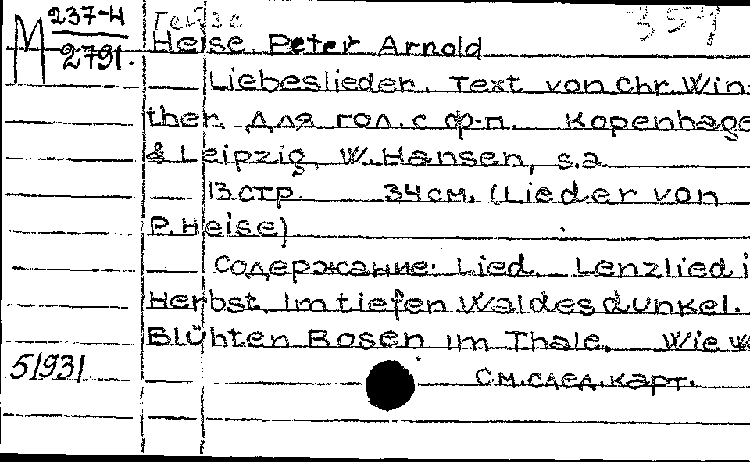 М 237-Н Гейзе 354
2791. Heise, Peter Arnold
Liebeslieder. Text von Chr. Win-
ther. Для гол. с ф-п. Kopenhage
& Leipzig, W. Hansen, s.a.
13 стр. 34 см. (Lieder von
P. Heise)
Содержание: Lied. Lenzlied i
Herbst. Im tiefen Waldesdunkel.
Blühten Rosen im Thale. Wie w
51931 См. след. карт.